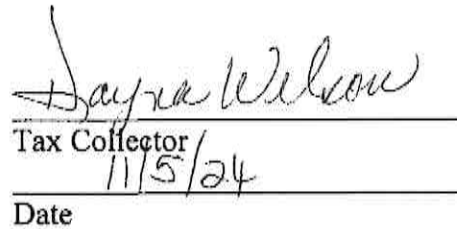 Dayna Wilson
Tax Collector
11/5/24
Date